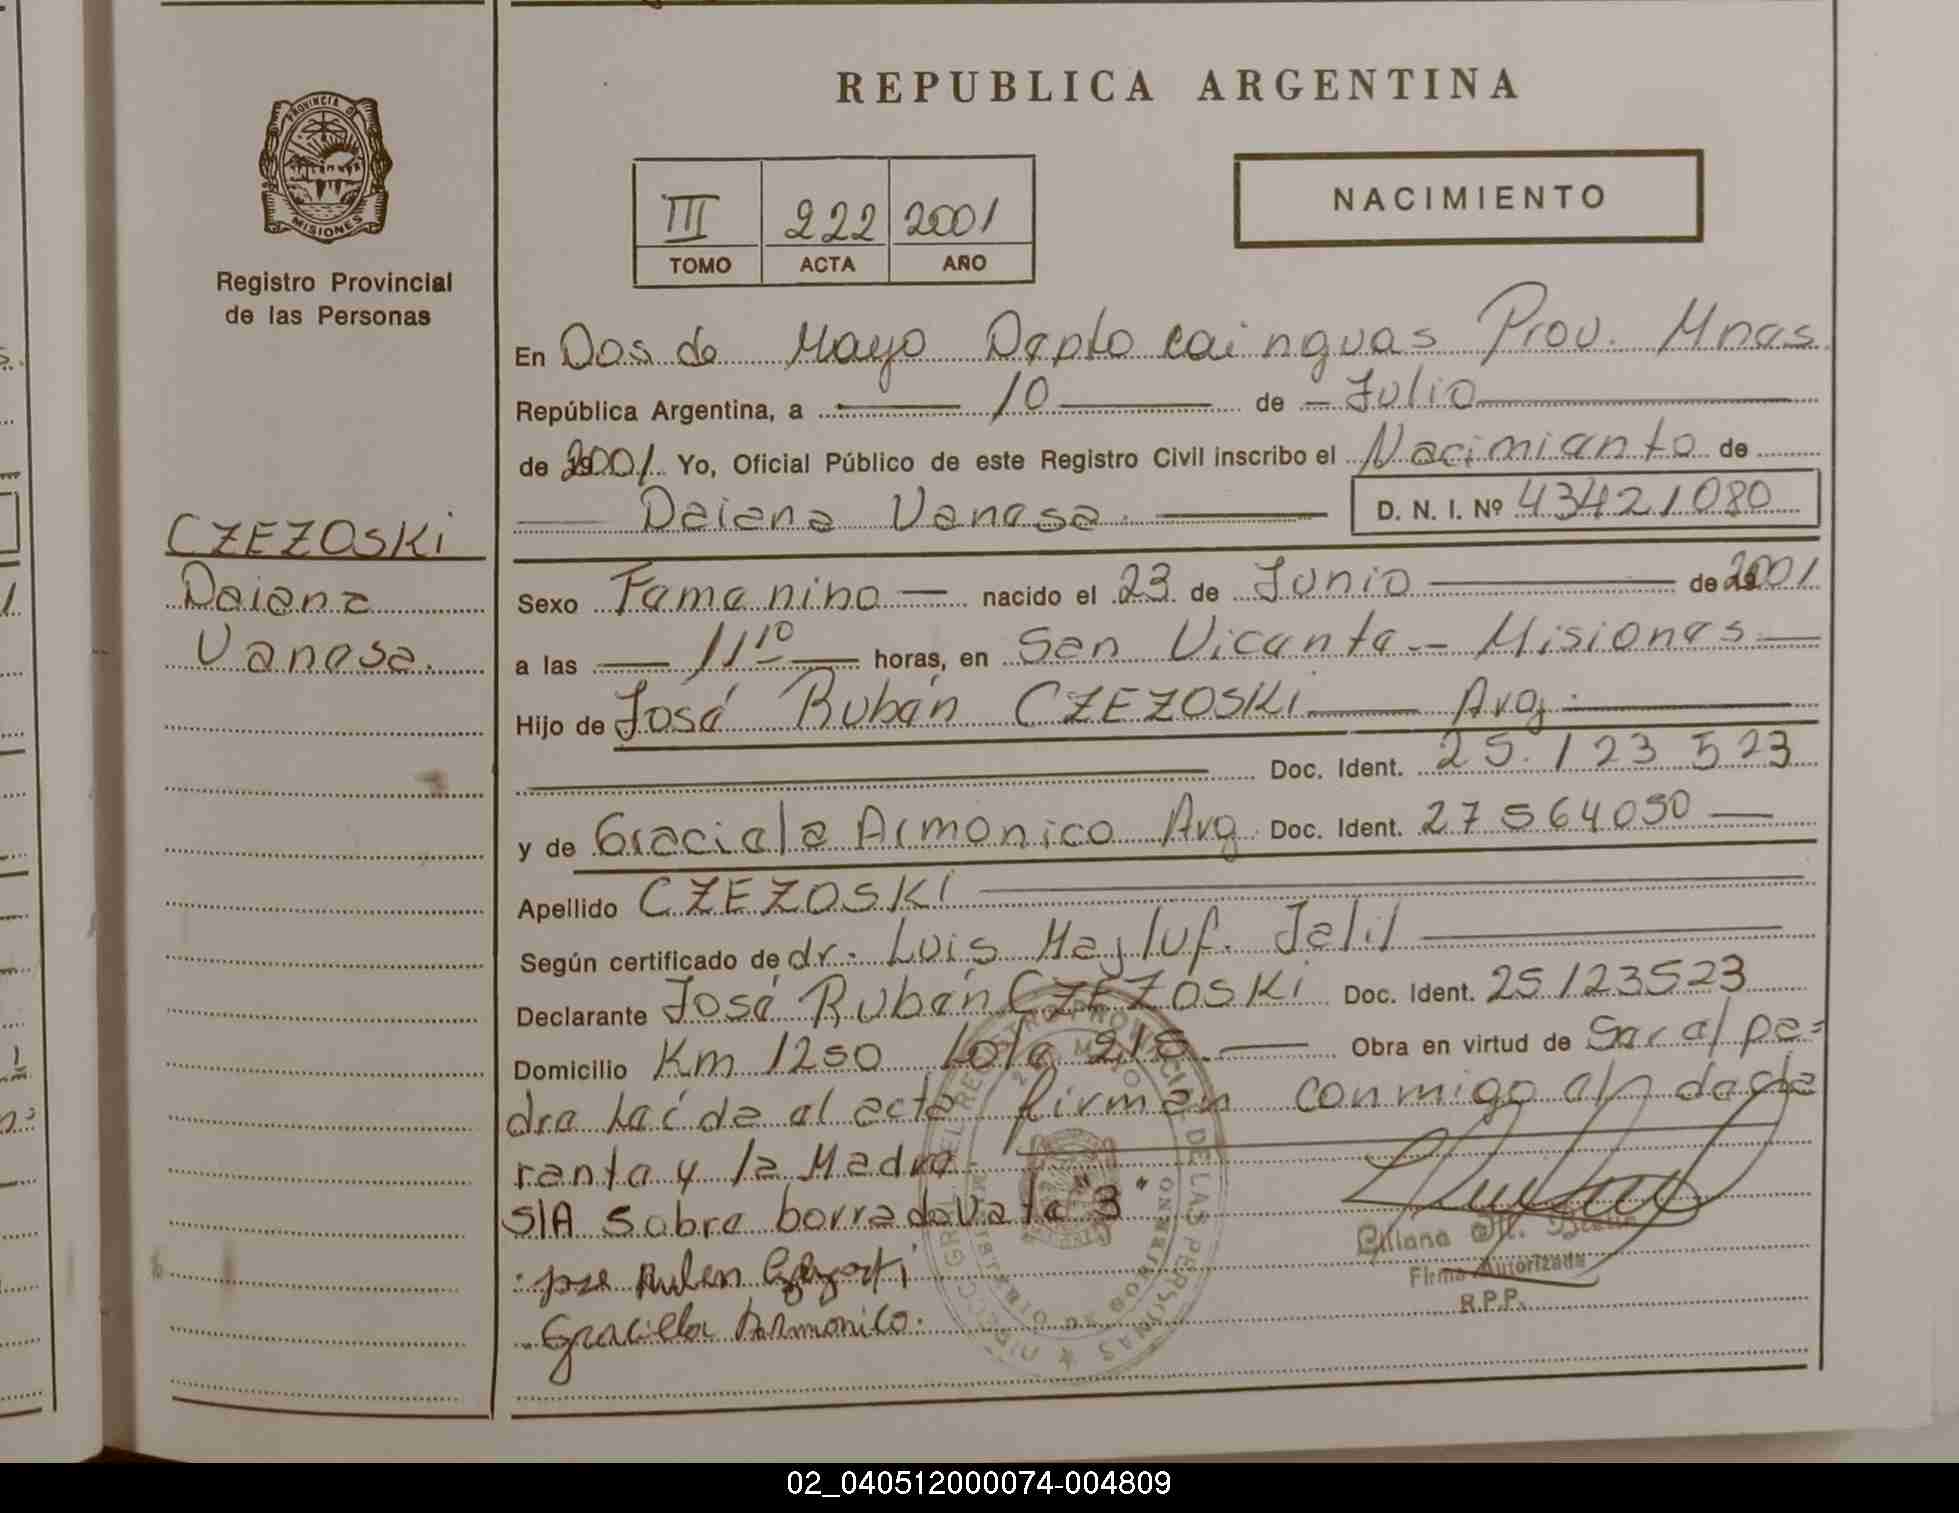 PROVINCIA DE
MISIONES
Registro Provincial
de las Personas
CZEZOSKi
Daiana
Vanesa.
REPUBLICA ARGENTINA
III 222 2001
TOMO ACTA AÑO
NACIMIENTO
En Dos de Mayo Depto cainguas Prov. Mnes.
República Argentina, a 10 de Julio
de 2001 Yo, Oficial Público de este Registro Civil inscribo el Nacimiento de
Daiana Vanesa. D. N. I. Nº 43421080
Sexo Femenino nacido el 23 de Junio de 2001
a las 11 10 horas, en San Vicente - Misiones
Hijo de José Rubén CZEZOSKi Arg.
Doc. Ident. 25.123 523
y de Graciela Armonico Arg. Doc. Ident. 27564050
Apellido CZEZOSKi
Según certificado de dr. Luis Majluf. Jalil
Declarante José Rubén CZEZOSKi Doc. Ident. 25123523
Domicilio Km 1250 lote 216 Obra en virtud de Ser el pa=
dre Leída el acta firman conmigo el decla
rante y la Madre.
S/A sobre borrado Vale "3"
Jose Ruben
Graciela Armonico.
REGISTRO PROVINCIAL DE LAS PERSONAS
Firma Autorizada
R.P.P.
02_040512000074-004809